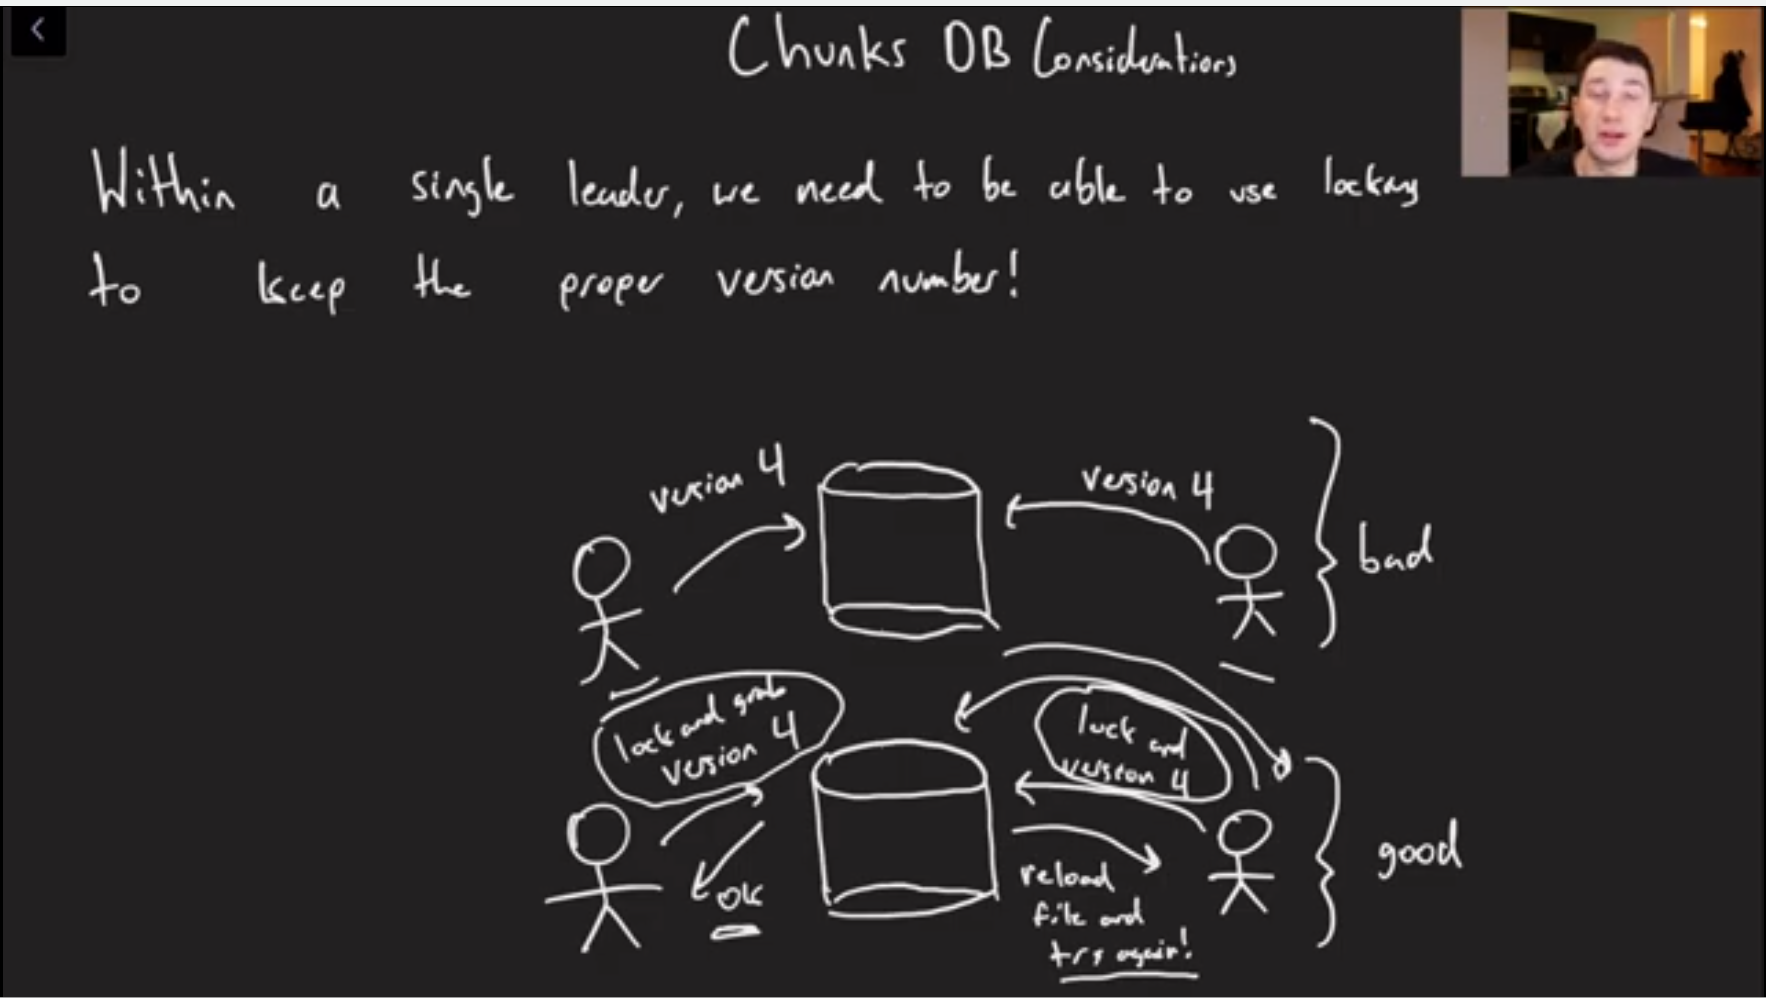 Chunks DB Considerations
Within a single leader, we need to be able to use locking
to keep the proper version number!
version 4
version 4
bad
lock and grab
version 4
lock and
version 4
ok
reload
file and
try again!
good